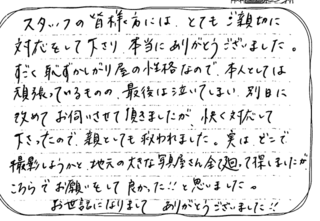 スタッフの皆様方には、とてもご親切に
対応をして下さり、本当にありがとうございました。
すごく恥ずかしがり屋の性格なので、本人としては
頑張っているものの、最後は泣いてしまい、別日に
改めてお伺いさせて頂きましたが、快く対応して
下さったので、親としても救われました。実は、どこで
撮影しようかと、地元の大きな写真屋さん全て廻って探しましたが
こちらでお願いをして良かった!!と思いました。
お世話になりまして ありがとうございました!!